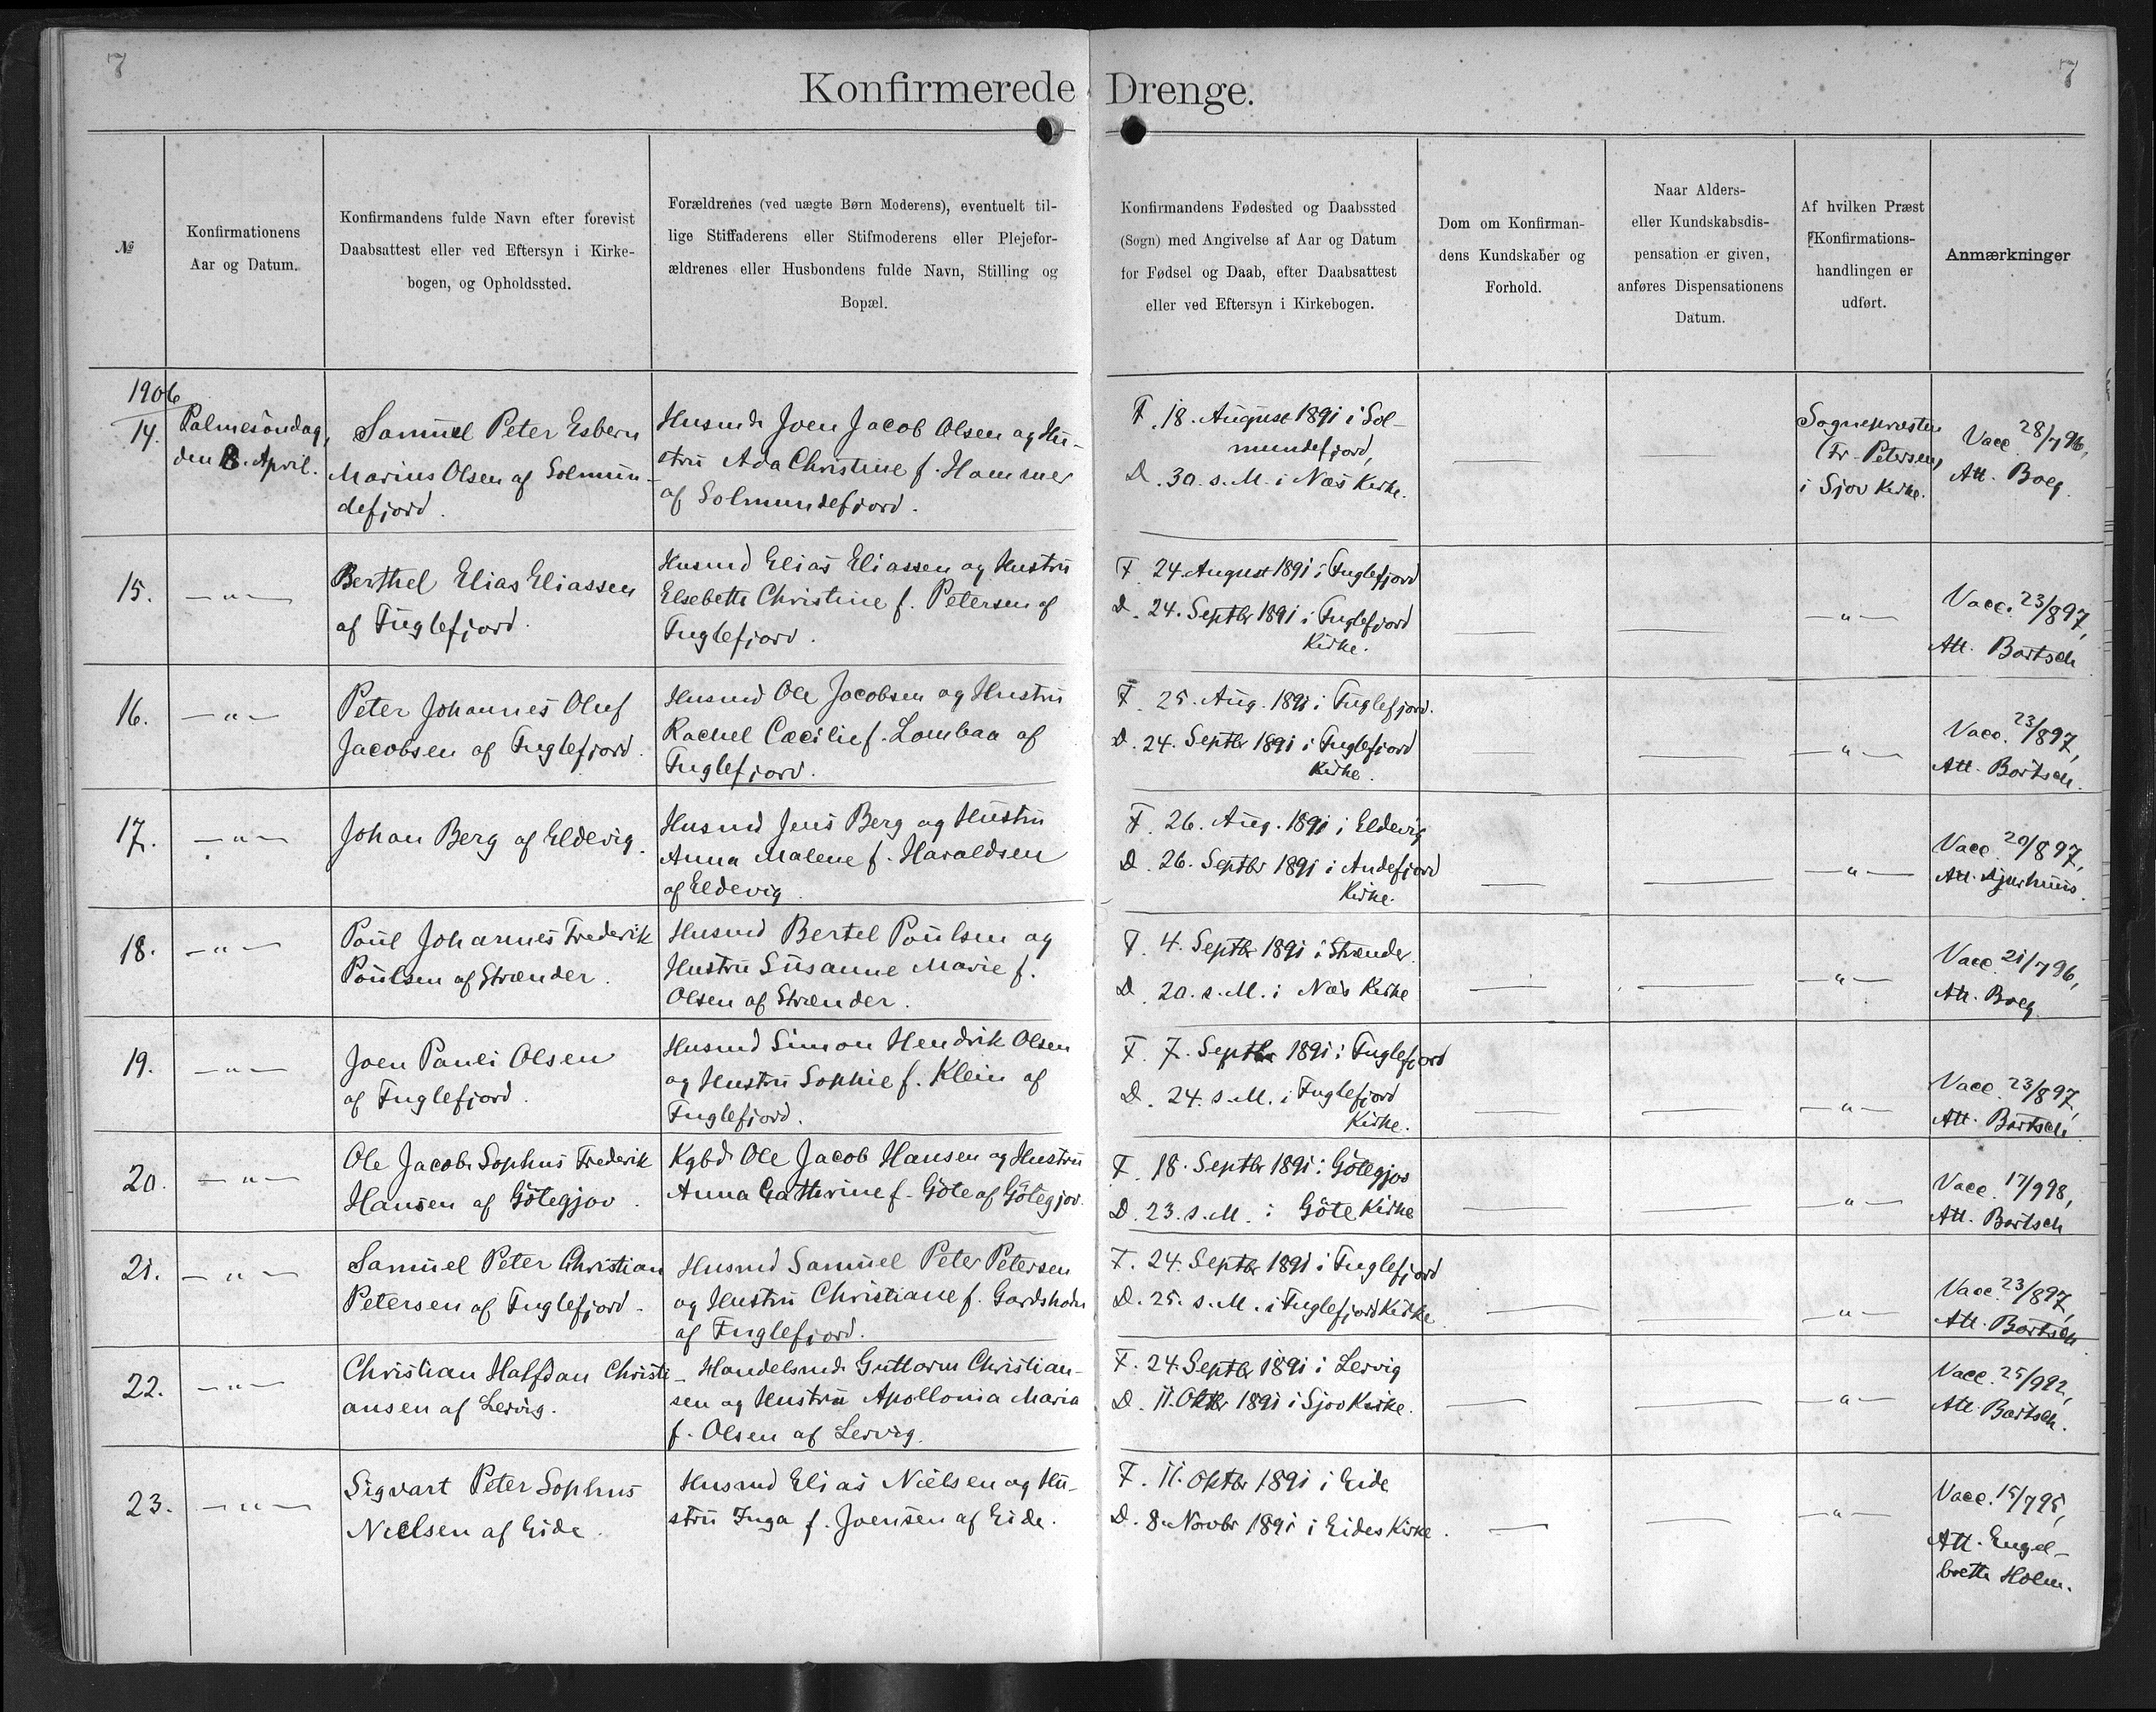 7
7
Konfirmerede Drenge.
№
Konfirmationens
Aar og Datum.
Konfirmandens fulde Navn efter forevist
Daabsattest eller ved Eftersyn i Kirke-
bogen, og Opholdssted.
Forældrenes (ved uægte Børn Moderens), eventuelt til-
lige Stiffaderens eller Stifmoderens eller Plejefor-
ældrenes eller Husbondens fulde Navn, Stilling og
Bopæl.
Konfirmandens Fødested og Daabssted
(Sogn) med Angivelse af Aar og Datum
for Fødsel og Daab, efter Daabsattest
eller ved Eftersyn i Kirkebogen.
Dom om Konfirman-
dens Kundskaber og
Forhold.
Naar Alders-
eller Kundskabsdis-
pensation er given,
anføres Dispensationens
Datum.
Af hvilken Præst
Konfirmations-
handlingen er
udført.
Anmærkninger
1906
14.
Palmesöndag,
den 8. April.
Samuel Peter Esbern
Marius Olsen af Solmun-
defjord.
Husmd Joen Jacob Olsen og Hu-
stru Ada Christine f. Hammer
af Solmundefjord.
F. 18. August 1891 i Sol-
mundefjord,
D. 30. s. M. i Næs Kirke.
Sognepræsten
Fr. Petersen,
i Sjov Kirke.
Vacc. 28/7 96,
Att. Boeg.
15.
— " —
Berthel Elias Eliassen
af Fuglefjord.
Husmd Elias Eliassen og Hustru
Elsebeth Christine f. Petersen af
Fuglefjord.
F. 24. August 1891 i Fuglefjord
D. 24. Septbr 1891 i Fuglefjord
Kirke.
— " —
Vacc. 23/8 97,
Att. Bärtsch
16.
— " —
Peter Johannes Oluf
Jacobsen af Fuglefjord.
Husmd Ole Jacobsen og Hustru
Rachel Cæcilie f. Lombaa af
Fuglefjord.
F. 25. Aug. 1891 i Fuglefjord.
D. 24. Septbr 1891 i Fuglefjord
Kirke.
— " —
Vacc. 23/8 97,
Att. Bärtsch.
17.
— " —
Johan Berg af Eldevig.
Husmd Jens Berg og Hustru
Anna Malene f. Haraldsen
af Eldevig.
F. 26. Aug. 1891 i Eldevig
D. 26. Septbr 1891 i Andefjord
Kirke.
— " —
Vacc. 20/8 97,
Att.
18.
— " —
Poul Johannes Frederik
Poulsen af Strænder.
Husmd Bertel Poulsen og
Hustru Susanne Marie f.
Olsen af Strænder.
F. 4. Septbr 1891 i Strænder.
D. 20. s. M. i Næs Kirke
— " —
Vacc. 21/7 96,
Att. Boeg
19.
— " —
Joen Pauli Olsen
af Fuglefjord.
Husmd Simon Hendrik Olsen
og Hustru Sophie f. Klein af
Fuglefjord.
F. 7. Septbr 1891 i Fuglefjord
D. 24. s. M. i Fuglefjord
Kirke.
— " —
Vacc. 23/8 97,
Att. Bärtsch.
20.
— " —
Ole Jacob Sophus Frederik
Hansen af Götegjov.
Kgbd. Ole Jacob Hansen og Hustru
Anna Cathrine f. Göte af Götegjov.
F. 18. Septbr 1891 i Götegjov
D. 23. s. M. i Göte Kirke
— " —
Vacc. 17/9 98,
Att. Bärtsch
21.
— " —
Samuel Peter Christian
Petersen af Fuglefjord.
Husmd Samuel Peter Petersen
og Hustru Christiane f. Gardshodn
af Fuglefjord.
F. 24. Septbr 1891 i Fuglefjord
D. 25. s. M. i Fuglefjord Kirke.
— " —
Vacc. 23/8 97,
Att. Bärtsch.
22.
— " —
Christian Halfdan Christi-
ansen af Lervig.
Handelsmd. Guttorm Christian-
sen og Hustru Apollonia Maria
f. Olsen af Lervig.
F. 24. Septbr 1891 i Lervig
D. 11. Oktbr 1891 i Sjov Kirke.
— " —
Vacc. 25/9 92,
Att. Bärtsch.
23.
— " —
Sigvart Peter Sophus
Nielsen af Eide.
Husmd Elias Nielsen og Hu-
stru Inga f. Joensen af Eide.
F. 11. Oktbr 1891 i Eide
D. 8. Novbr 1891 i Eides Kirke.
— " —
Vacc. 15/7 95,
Att. Engel-
breth Holm.